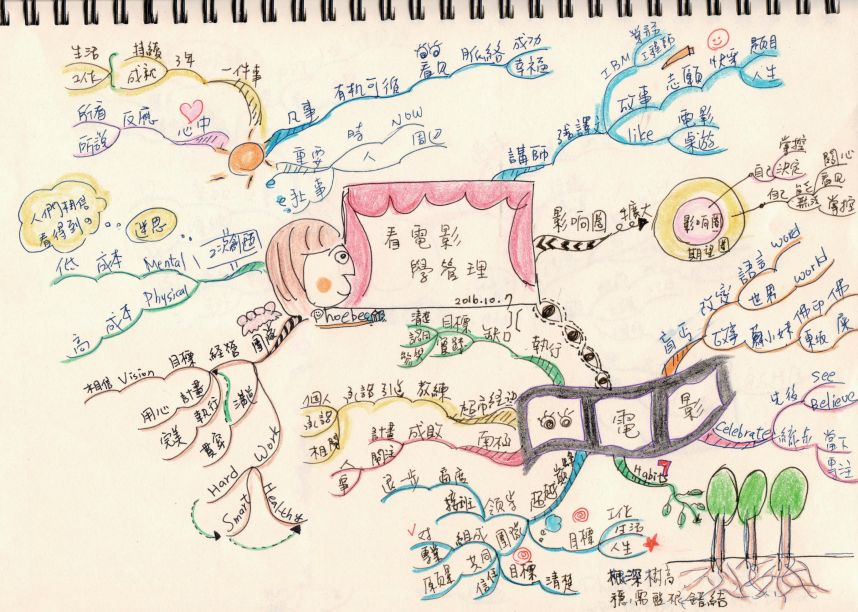 生活
工作
持續
成就
3年
一件事
所看
所說
反應
心中
凡事
有机可循
皆
看見
脈絡
成功
幸福
重要
時
NOW
人
周巴
講師
IBM
工程師
故事
志願
快樂
題目
人生
like
電影
桌遊
人們相信
看得到?
迷思
2次創造
低 成本 Mental
高 成本 Physical
看電影
學管理
2016.10.7
Phoebe
影响圈 擴大
影响圈
期望圈
自己
掌控
決定
自己
無法
掌控
關心
看見
盲点
改變
語言 world
世界 world
故事
蘇小妹
佛印 佛
東坡 屎
相信 Vision 目標 經營 團隊
用心 計畫
完美 執行
貫穿
溝通
Hard Work
Smart
Health
清楚
認同
目標
實踐
缺口
執行
個人
承諾
相關
承諾 引道 教練
超市經初
計畫
關注
成敗
南極
事
電
影
Celebrate
綠点
先後
See
Believe
當下
專注
Habits 7
進步 商店
接班 領導
超越巔峰
對
專業
組成 團隊
目標
工作
生活
人生
願景
共同
信信
目標 清楚
根深樹高
穩,需盤根錯結